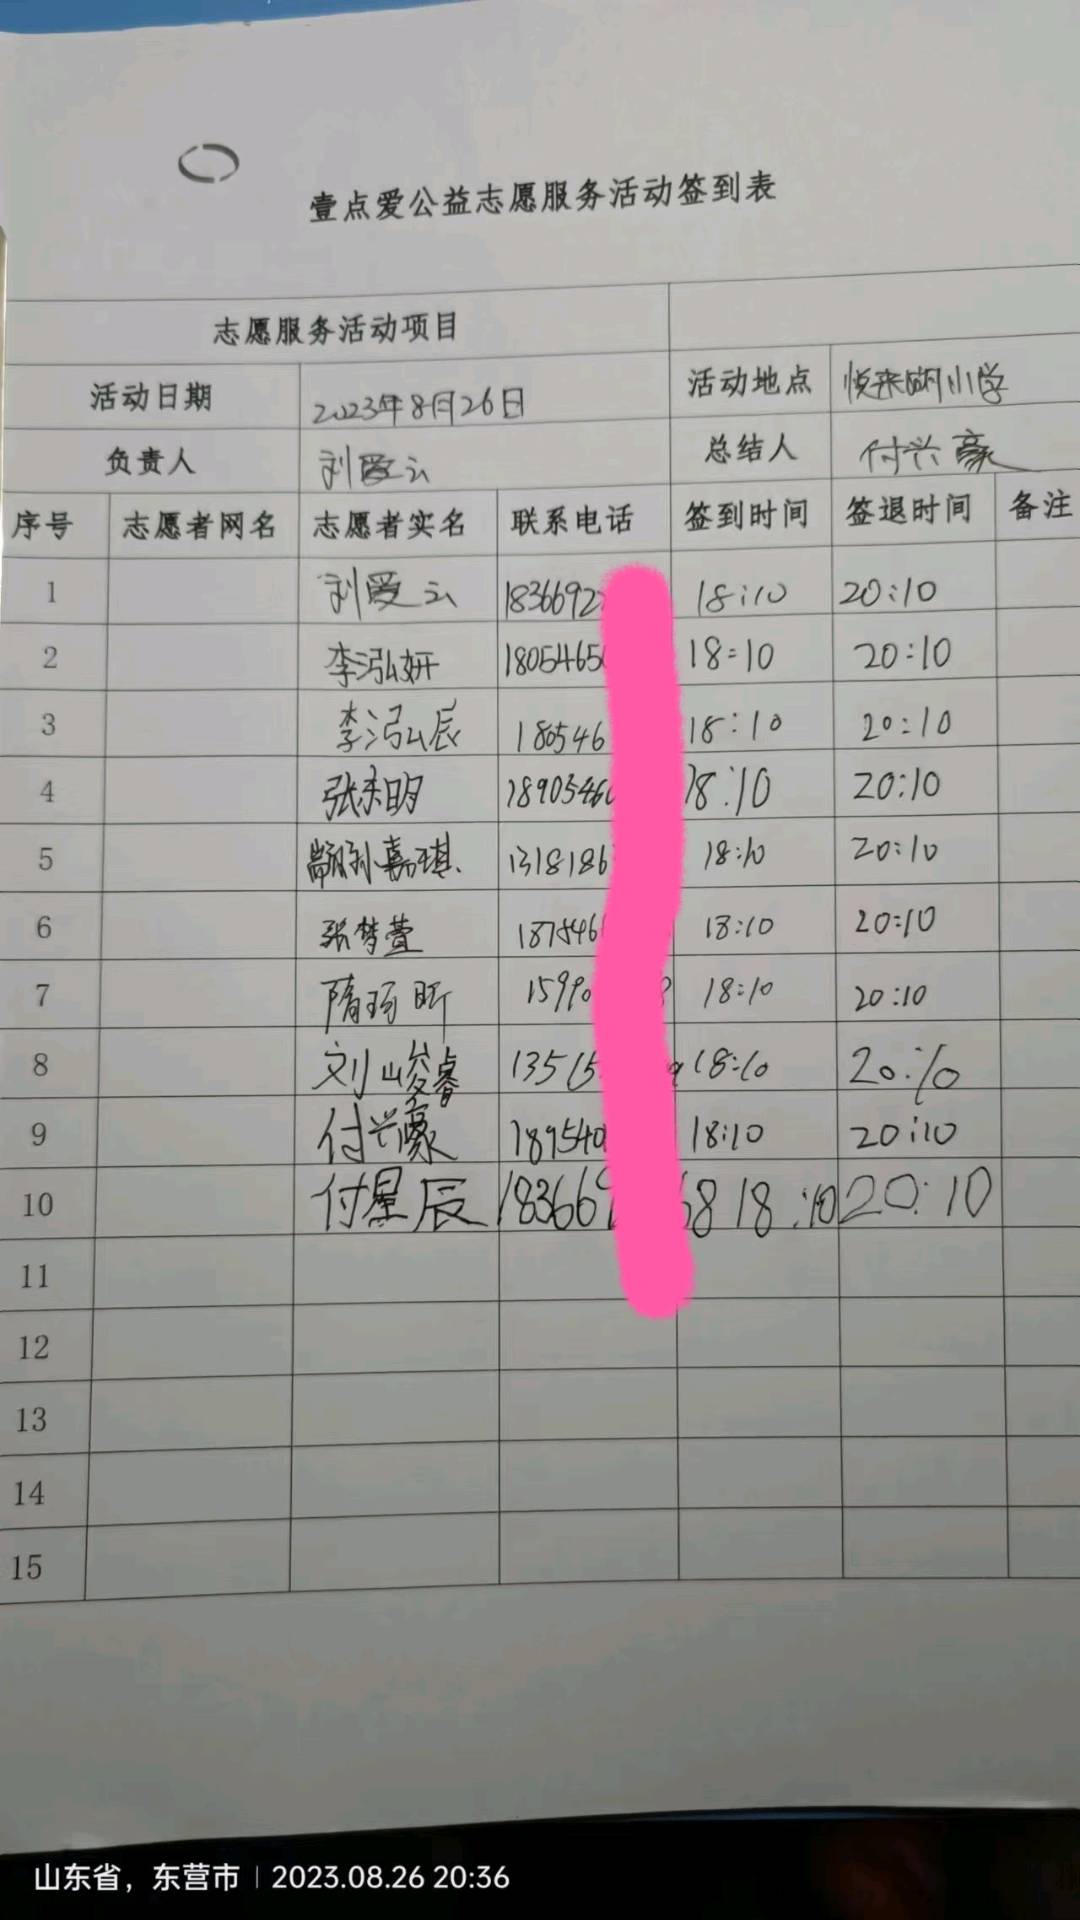 壹点爱公益志愿服务活动签到表
志愿服务活动项目
活动日期 2023年8月26日 活动地点 悦来湖小学
负责人 刘爱云 总结人 付兴豪
序号 志愿者网名 志愿者实名 联系电话 签到时间 签退时间 备注
1 刘爱云 1836692 18:10 20:10
2 李泓妍 18054650 18:10 20:10
3 李泓辰 180546 18:10 20:10
4 张东明 1890546 18:10 20:10
5 颛孙嘉琪 1318186 18:10 20:10
6 张梦萱 187546 18:10 20:10
7 隋珂昕 1599 18:10 20:10
8 刘峻睿 13515 18:10 20:10
9 付兴豪 189540 18:10 20:10
10 付星辰 18366 68 18:10 20:10
11
12
13
14
15
山东省，东营市 | 2023.08.26 20:36